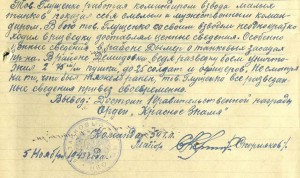 Тов. Глущенко работая командиром взвода малых
танков показал себя смелым и мужественным коман-
диром. В боях тов. Глущенко со своим взводом неоднократно
ходил в разведку доставлял ценные сведения. Особенно
ценные сведения в районе Дымер о танковых засадах
пр-ка.
разведки боем уничто-
жил 2 75 м/м пушки до 25 солдат и офицеров. Не смотря
на то, что был тяжело ранен, тов. Глущенко все разведан-
ные сведения привез своевременно.
Вывод: Достоин правительственной награды
Орден „Красное Знамя"
Командир 54
Майор
5 Ноября 1943